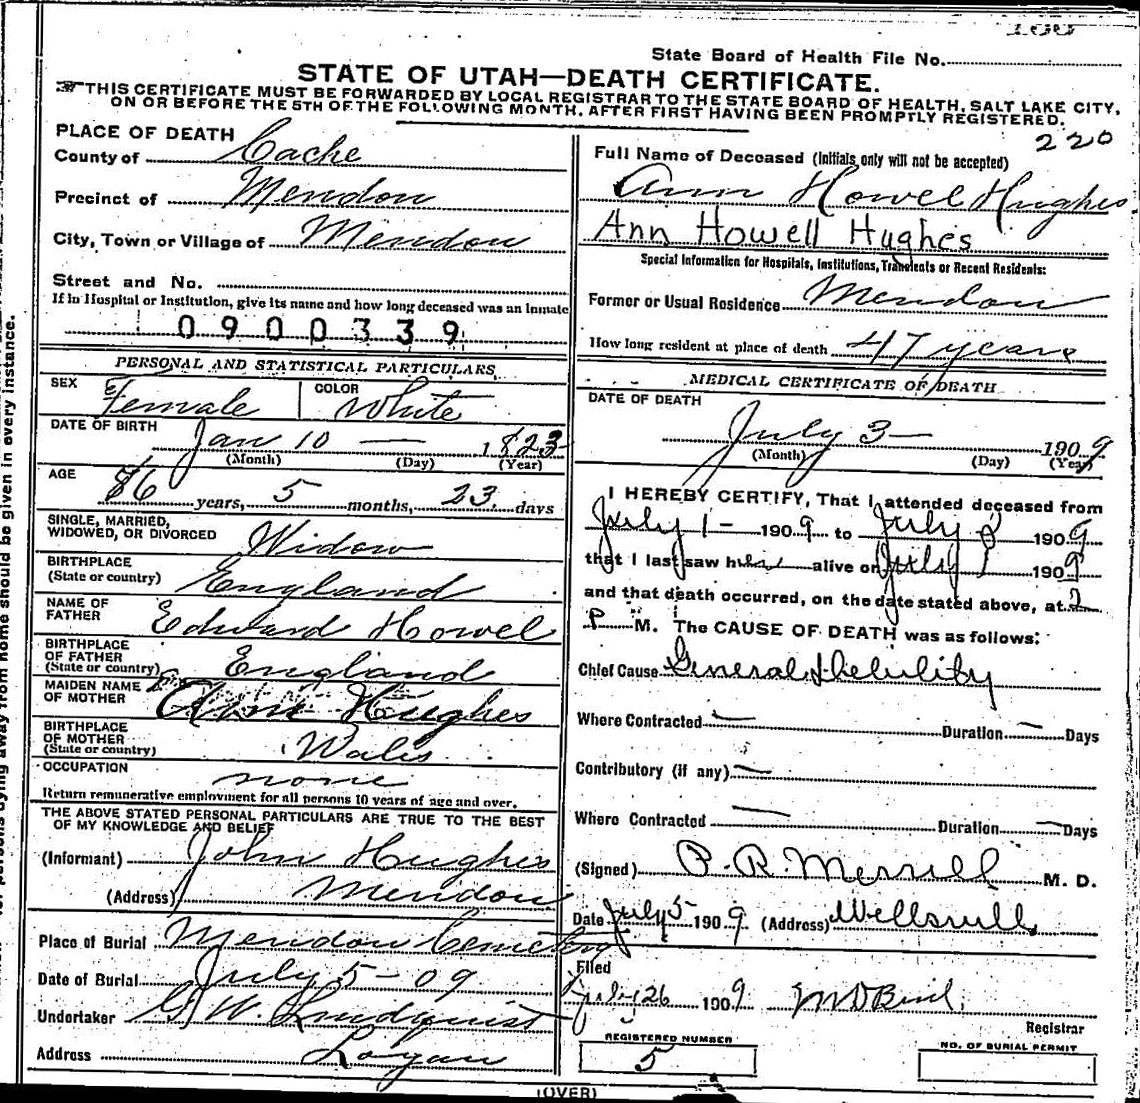 State Board of Health File No.
STATE OF UTAH—DEATH CERTIFICATE.
THIS CERTIFICATE MUST BE FORWARDED BY LOCAL REGISTRAR TO THE STATE BOARD OF HEALTH, SALT LAKE CITY,
ON OR BEFORE THE 5TH OF THE FOLLOWING MONTH, AFTER FIRST HAVING BEEN PROMPTLY REGISTERED.
220
PLACE OF DEATH
County of Cache
Precinct of Mendon
City, Town or Village of Mendon
Street and No.
If in Hospital or Institution, give its name and how long deceased was an inmate
0900339
PERSONAL AND STATISTICAL PARTICULARS
SEX Female COLOR White
DATE OF BIRTH Jan 10 — 1823
(Month) (Day) (Year)
AGE 86 years, 5 months, 23 days
SINGLE, MARRIED,
WIDOWED, OR DIVORCED Widow
BIRTHPLACE
(State or country) England
NAME OF
FATHER Edward Howel
BIRTHPLACE
OF FATHER
(State or country) England
MAIDEN NAME
OF MOTHER Hughes
BIRTHPLACE
OF MOTHER
(State or country) Wales
OCCUPATION none
Return remunerative employment for all persons 10 years of age and over.
THE ABOVE STATED PERSONAL PARTICULARS ARE TRUE TO THE BEST
OF MY KNOWLEDGE AND BELIEF
(Informant) John Hughes
(Address) Mendon
Place of Burial Mendon Cemetery
Date of Burial July 5-09
Undertaker G. W. Lindquist
Address Logan
Full Name of Deceased (Initials only will not be accepted)
Ann Howel Hughes
Ann Howell Hughes
Special Information for Hospitals, Institutions, Transients or Recent Residents:
Former or Usual Residence Mendon
How long resident at place of death 47 years
MEDICAL CERTIFICATE OF DEATH
DATE OF DEATH
July 3 — 1909
(Month) (Day) (Year)
I HEREBY CERTIFY, That I attended deceased from
July 1 — 1909 to July 3 1909
that I last saw her alive on July 1909
and that death occurred, on the date stated above, at
P M. The CAUSE OF DEATH was as follows:
Chief Cause General debility
Where Contracted — Duration — Days
Contributory (if any) —
Where Contracted — Duration — Days
(Signed) P. R. Merrill M. D.
Date July 5 1909 (Address) Wellsville
Filed
July 26 1909
Registrar
REGISTERED NUMBER
5
NO. OF BURIAL PERMIT
(OVER)
persons dying away from home should be given in every instance.